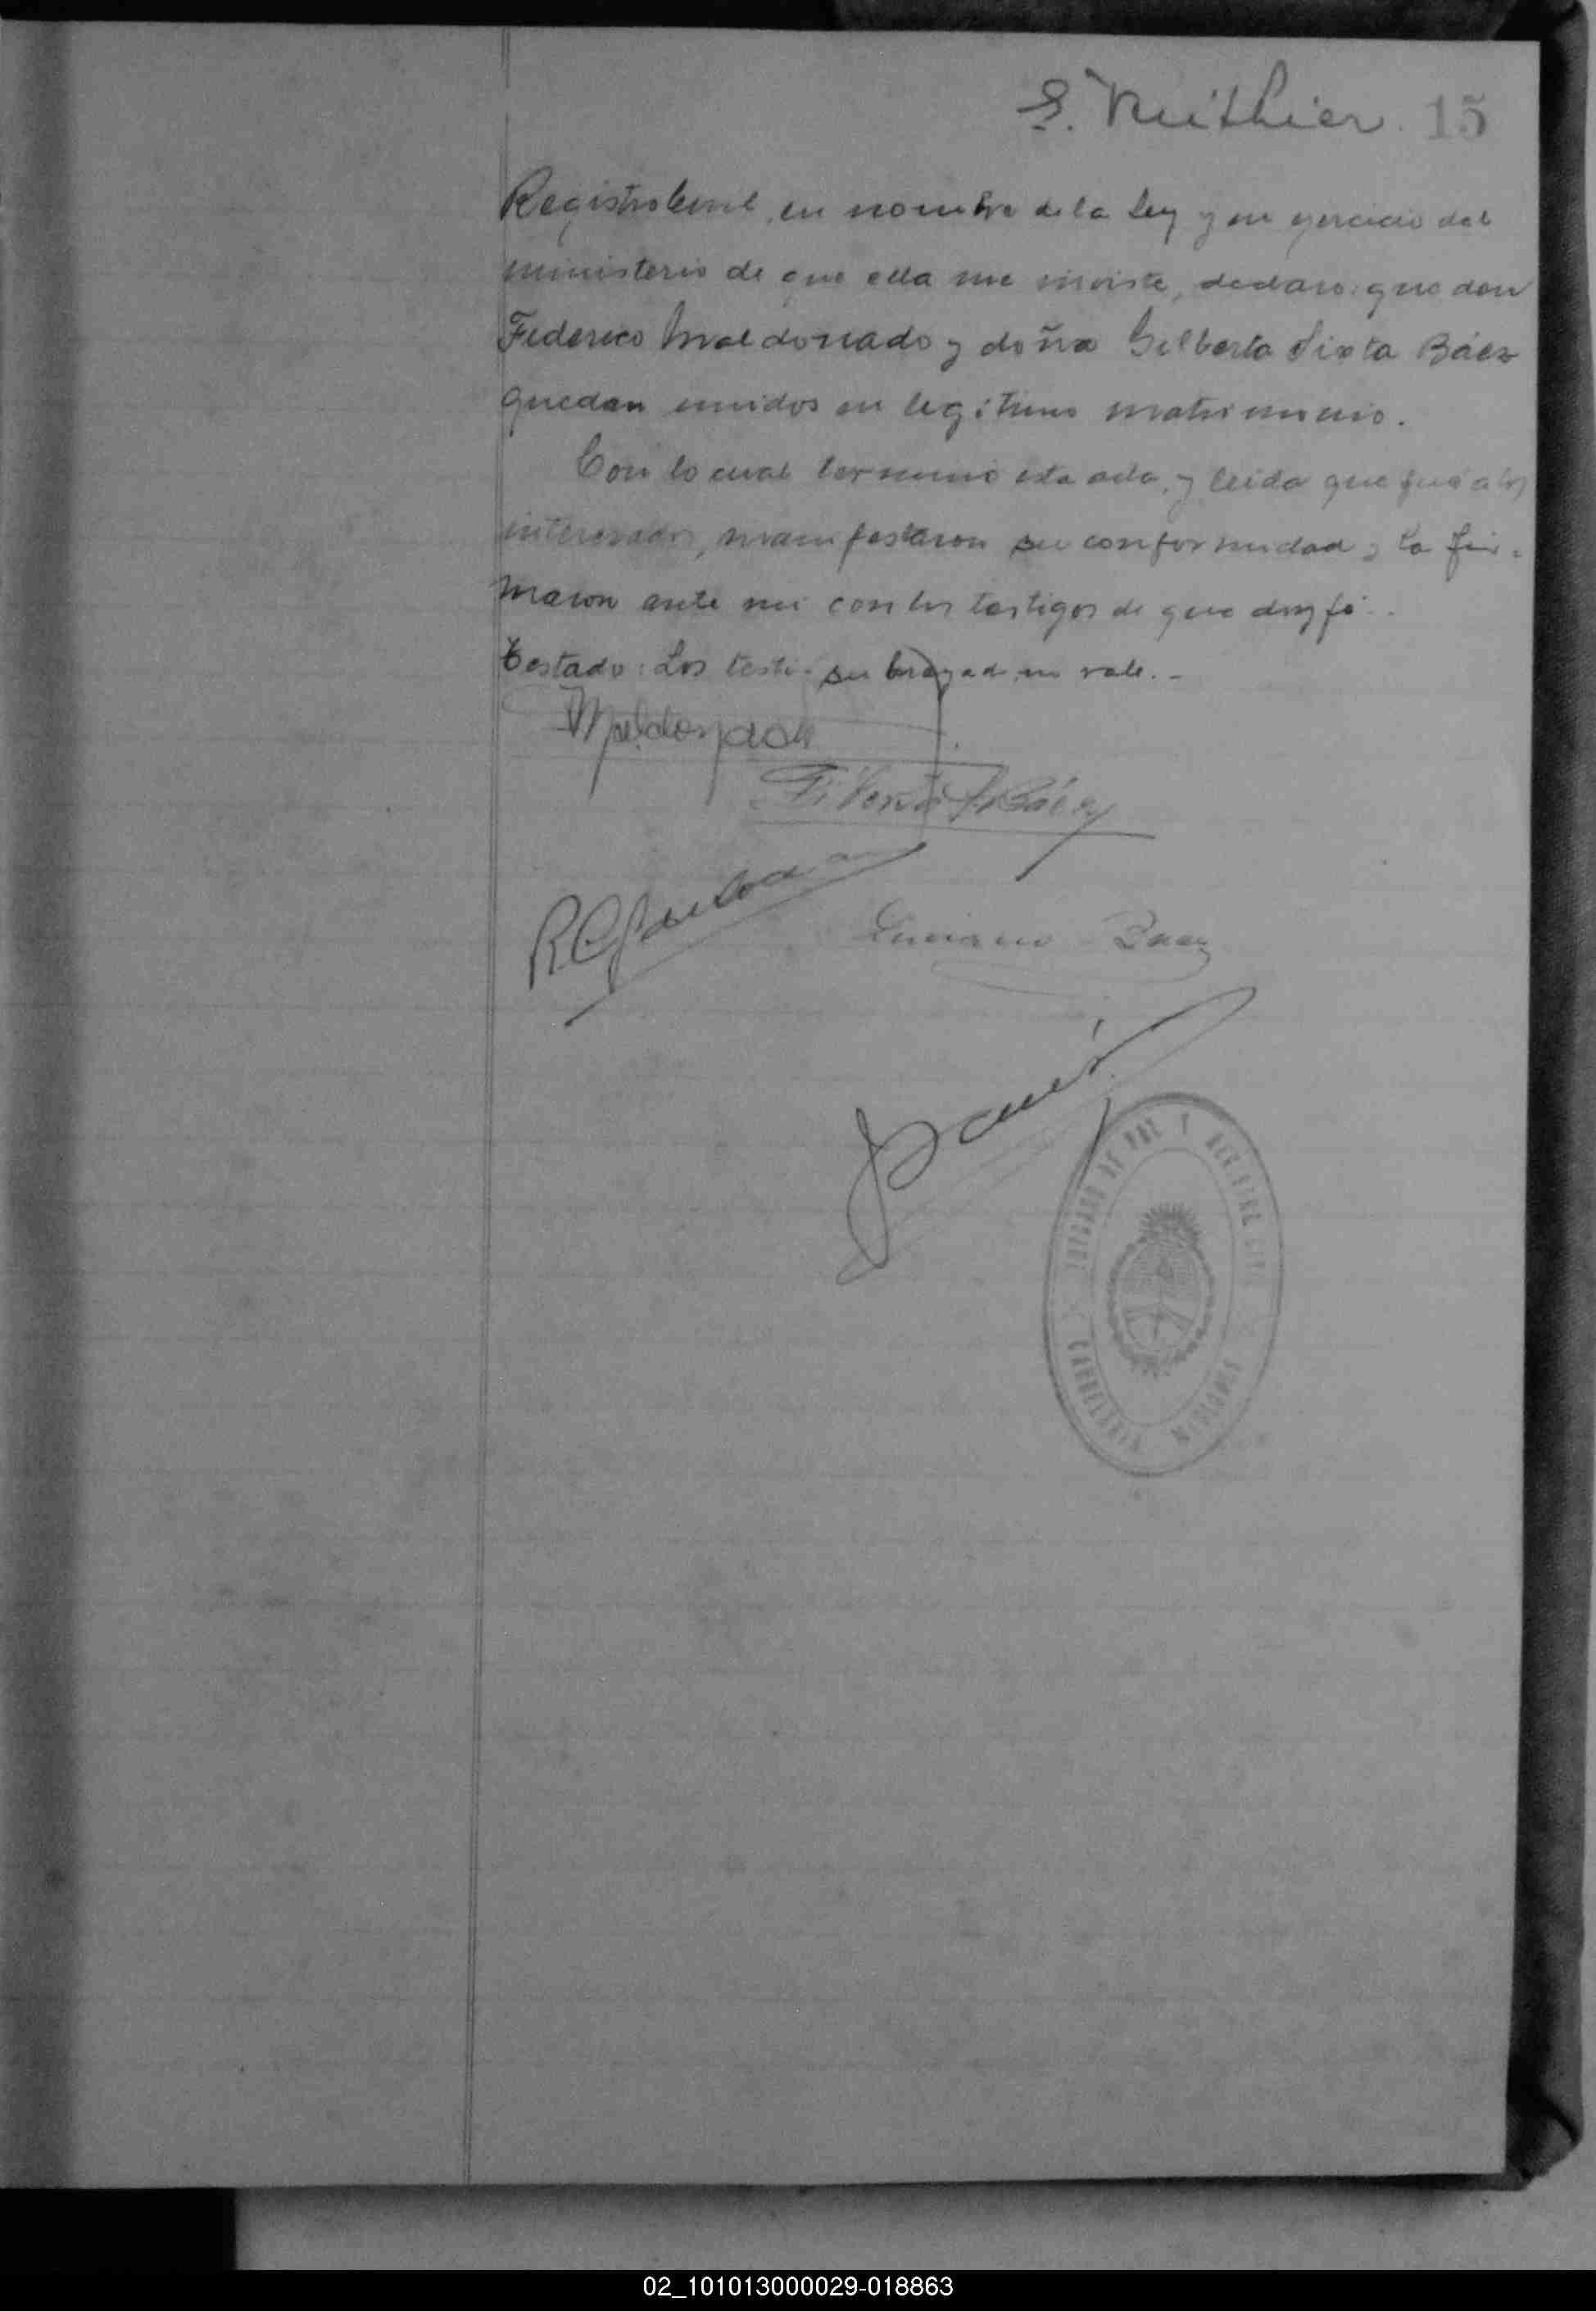 E. Muithier. 15
Registro Civil, en nombre de la Ley y en ejercicio del
ministerio de que ella me inviste, declaro: que don
Federico Maldonado y doña Gilberta Sixta Báez
quedan unidos en legítimo matrimonio.
Con lo cual terminó esta acta, y leida que fué a los
interesados, manifestaron su conformidad y la fir-
maron ante mi con los testigos de que doy fé.-
Testado: Los testi- su no vale.-
Maldonado
Báez
Luciano Baez
JUZGADO DE PAZ Y REGISTRO CIVIL
MISIONES
02_101013000029-018863